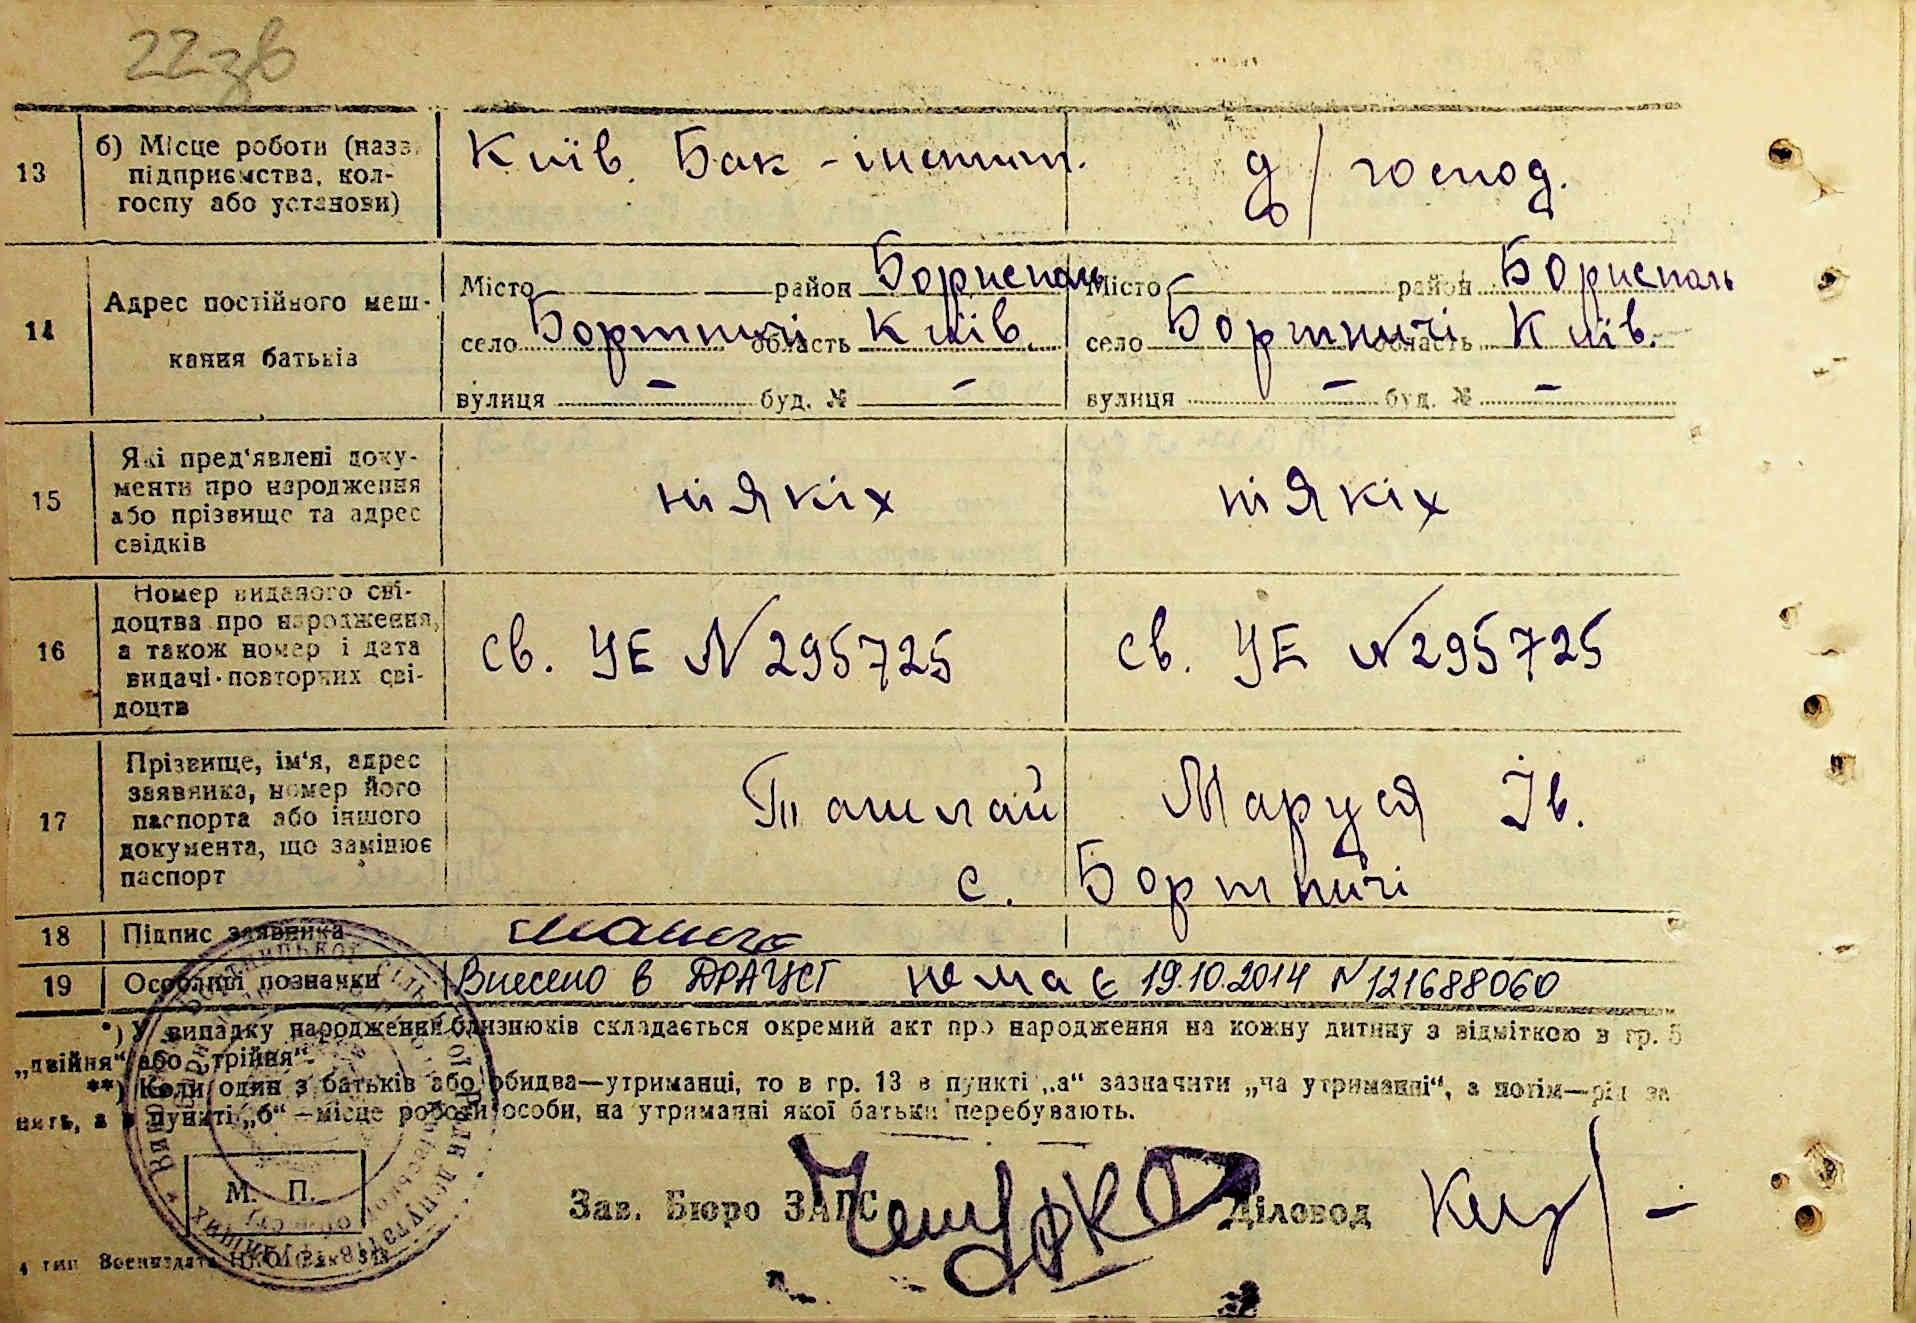 22зв
13
б) Місце роботи (назв.
підприємства, кол-
госпу або установи)
Київ. Бак-інстит.
д/господ.
14
Адрес постійного меш-
кання батьків
Місто район Бориспаль
село Бортничі область Київ.
вулиця – буд. № –
Місто район Бориспаль
село Бортничі область Київ.
вулиця – буд. № –
15
Які пред'явлені доку-
менти про народження
або прізвище та адрес
свідків
ніякіх
ніякіх
16
Номер виданого сві-
доцтва про народження,
а також номер і дата
видачі повторних сві-
доцтв
св. УЕ N295725
св. УЕ N295725
17
Прізвище, ім'я, адрес
заявника, номер його
паспорта або іншого
документа, що замінює
паспорт
Ташлай Маруся Ів.
с. Бортничі
18
Підпис заявника
19
Особливі позначки
Внесено в ДРАЦСГ немає 19.10.2014 N121688060
*) У випадку народження близнюків складається окремий акт про народження на кожну дитину з відміткою в гр. 5
„двійня“ або „трійня“.
**) Коли один з батьків або обидва—утриманці, то в гр. 13 в пункті „а“ зазначити „на утриманні“, а потім—рід за
нять, а в пункті „б“—місце роботи особи, на утриманні якої батьки перебувають.
М. П.
Зав. Бюро ЗАГС
Діловод
4 тип Воениздата НКО Зак